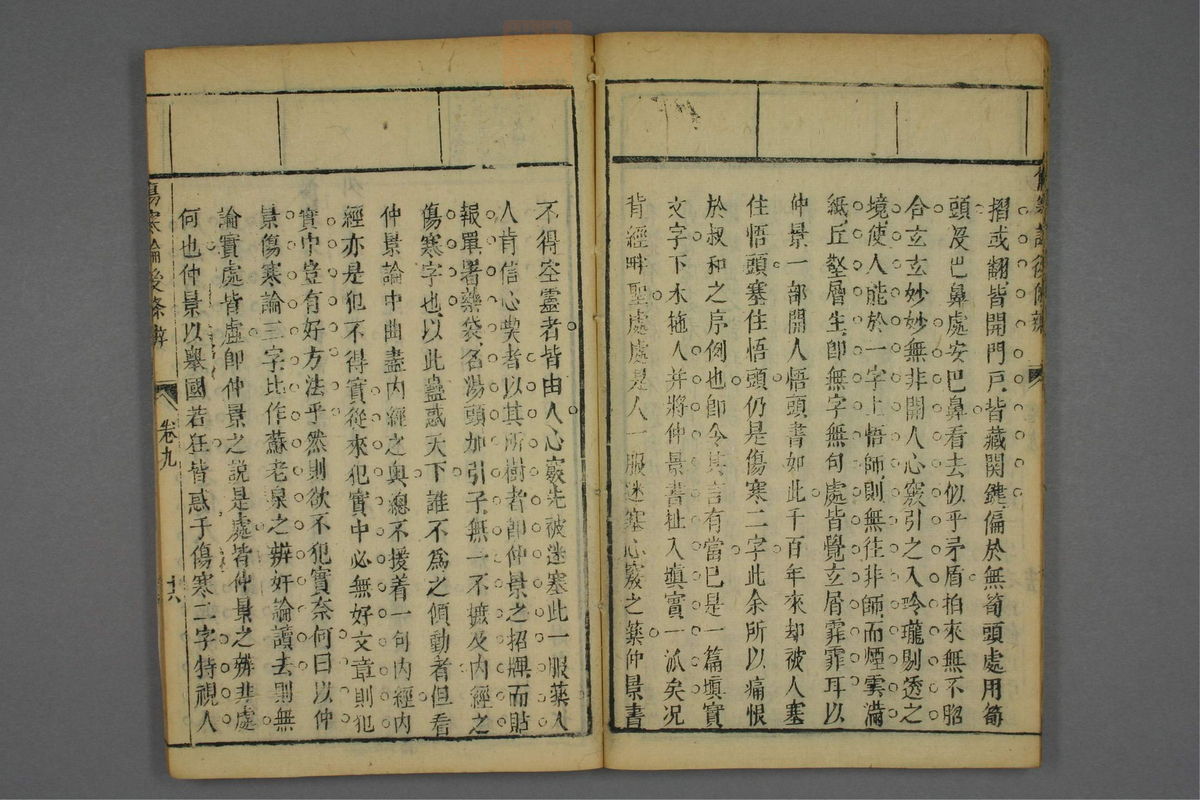 摺或翻皆開門戶皆藏関鍵偏於無筍頭處用筍
頭沒巴鼻處安巴鼻看去似乎矛盾拍來無不脗
合玄玄妙妙無非開人心竅引之入玲瓏剔透之
境使人能於一字上悟師則無往非師而煙雲滿
紙丘壑層生卽無字無句處皆覺玄屑霏霏耳以
仲景一部開人悟頭書如此千百年來却被人塞
住悟頭塞住悟頭仍是傷寒二字此余所以痛恨
於叔和之序例也卽令其言有當已是一篇塡實
文字下木拖人并將仲景書扯入塡實一派矣况
背經畔聖處處是人一服迷塞心竅之藥仲景書
不得空靈者皆由人心竅先被迷塞此一服藥人
人肯信心喫者以其所樹者卽仲景之招牌而貼
報單署藥袋名湯頭加引子無一不摭及內經之
傷寒字也以此蠱惑天下誰不爲之傾動者但看
仲景論中曲盡內經之奥總不援着一句内經内
經亦是犯不得實從來犯實中必無好文章則犯
實中豈有好方法乎然則欲不犯實奈何曰以仲
景傷寒論三字比作蘇老泉之辨奸論讀去則無
論實處皆虛卽仲景之說是處皆仲景之辨非處
何也仲景以舉國若狂皆惑于傷寒二字特視人
傷寒論後條辨
卷九
十六